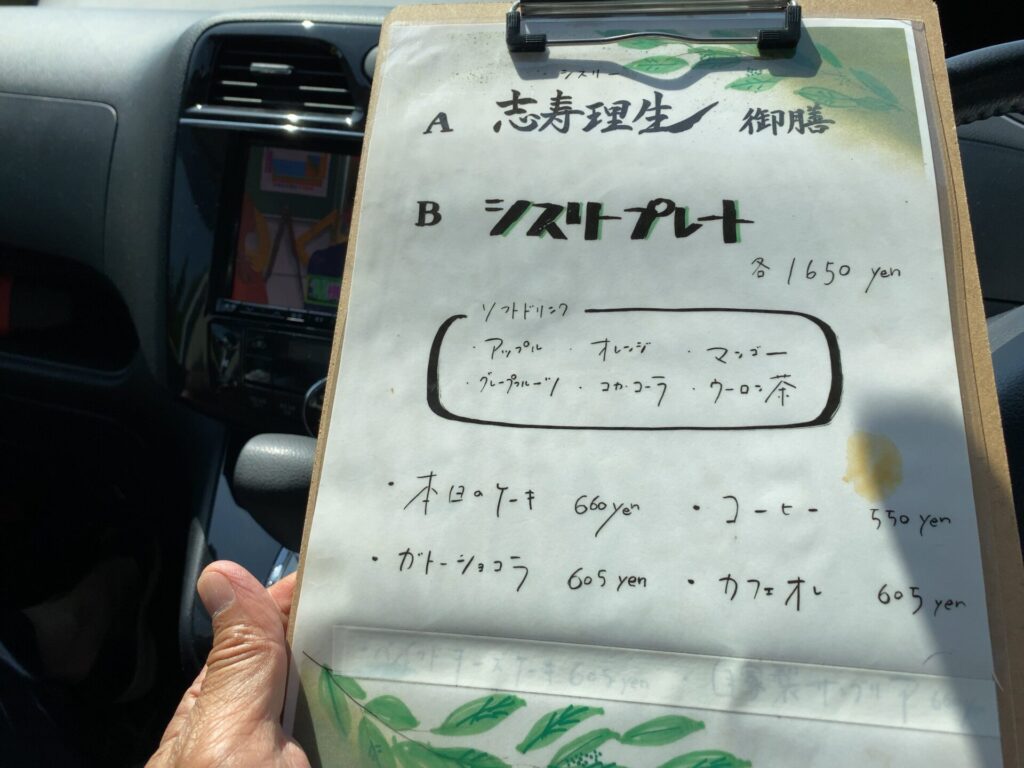 シスリー
A 志寿理生 御膳
B シスリープレート
各 1650 yen
ソフトドリンク
・アップル ・オレンジ ・マンゴー
・グレープフルーツ ・コカ・コーラ ・ウーロン茶
・本日のケーキ 660yen ・コーヒー 550 yen
・ガトーショコラ 605 yen ・カフェオレ 605 yen
チーズケーキ 605yen ・自家製サングリア